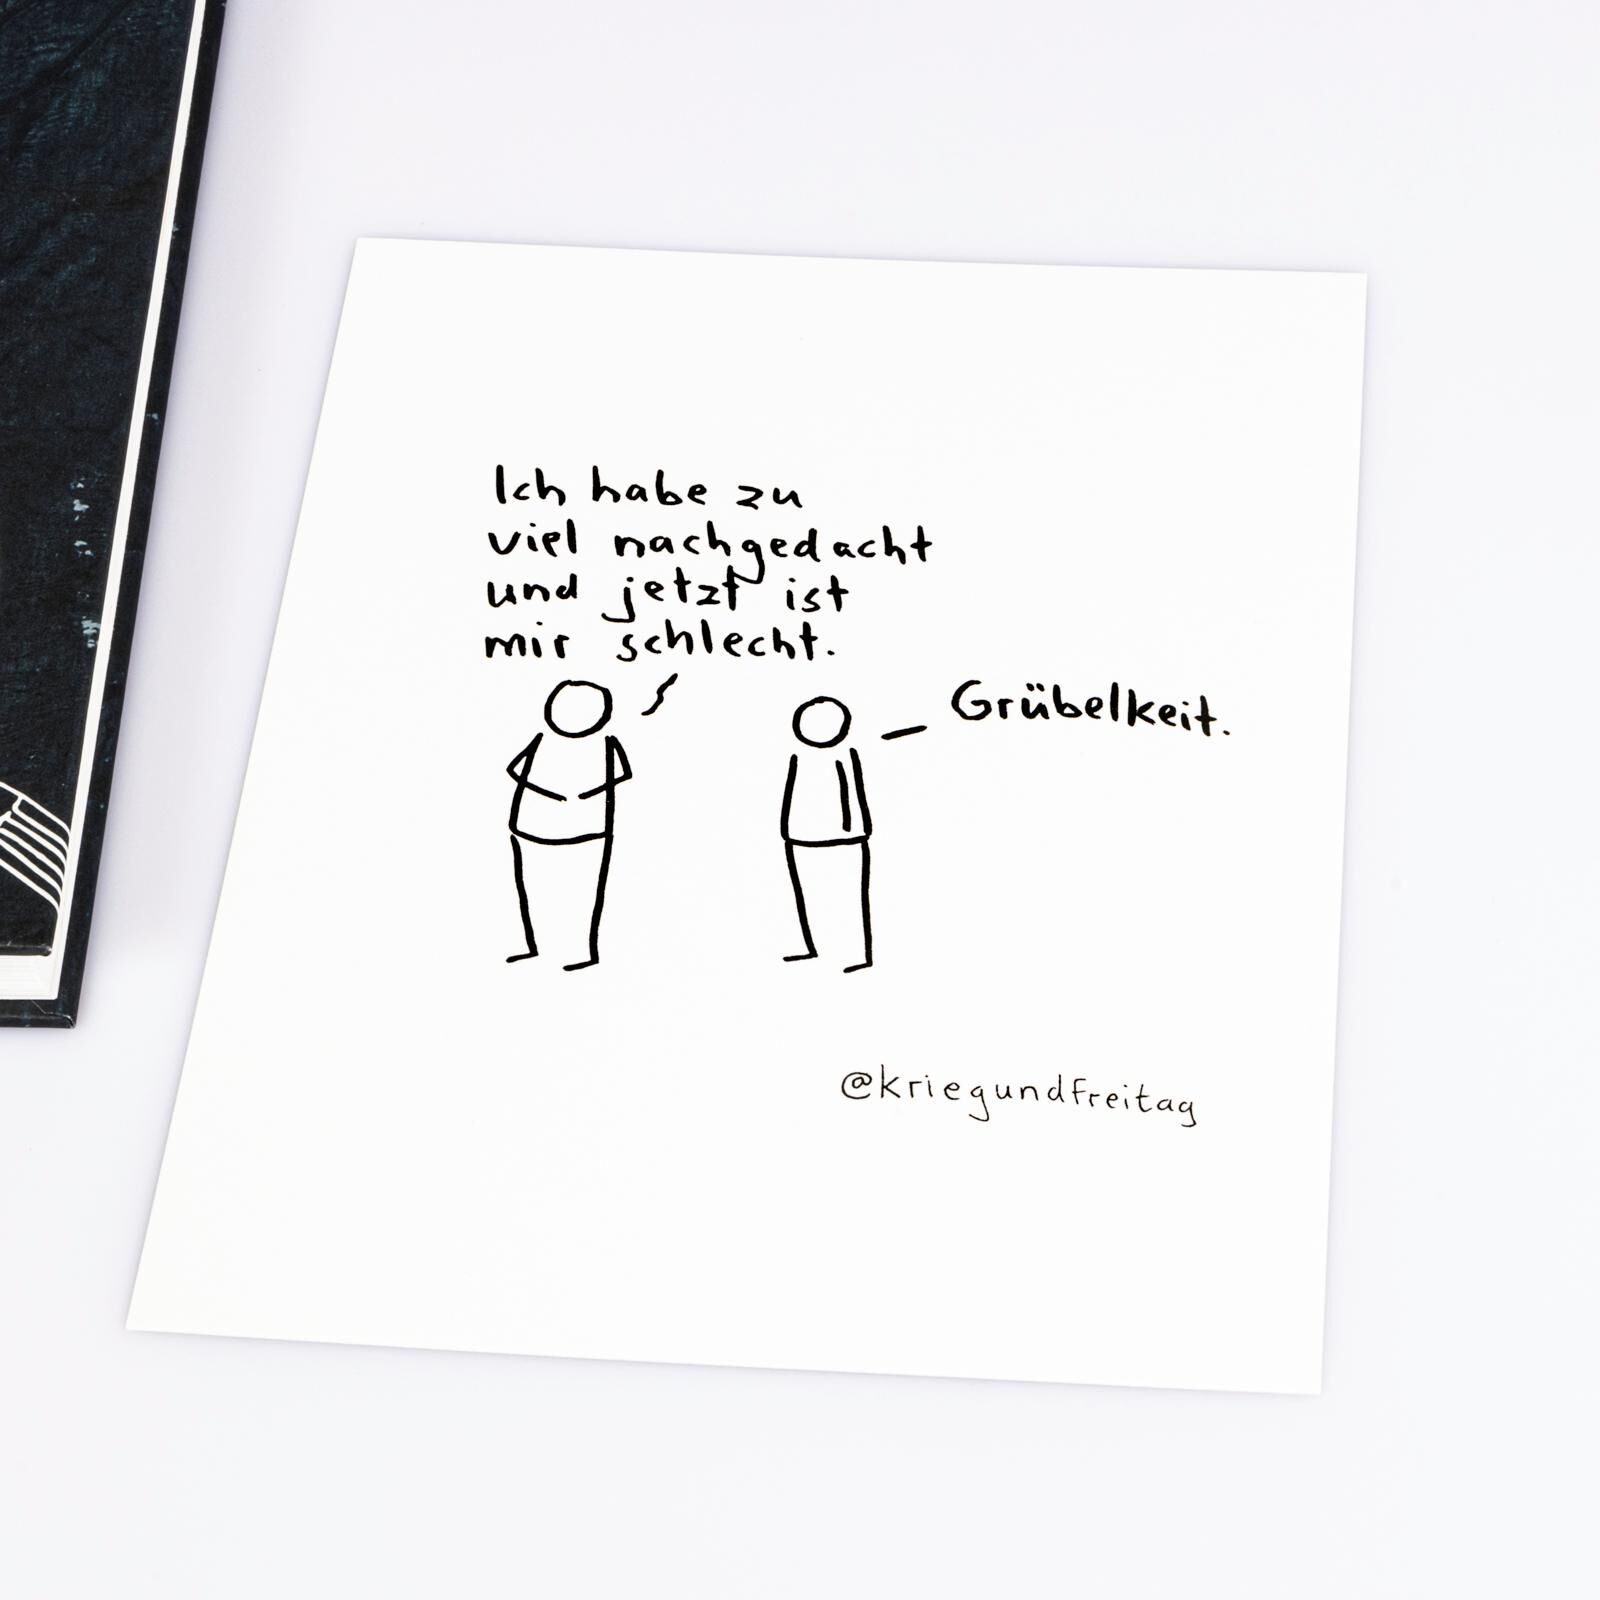 Ich habe zu
viel nachgedacht
und jetzt ist
mir schlecht.
Grübelkeit.
@kriegundfreitag